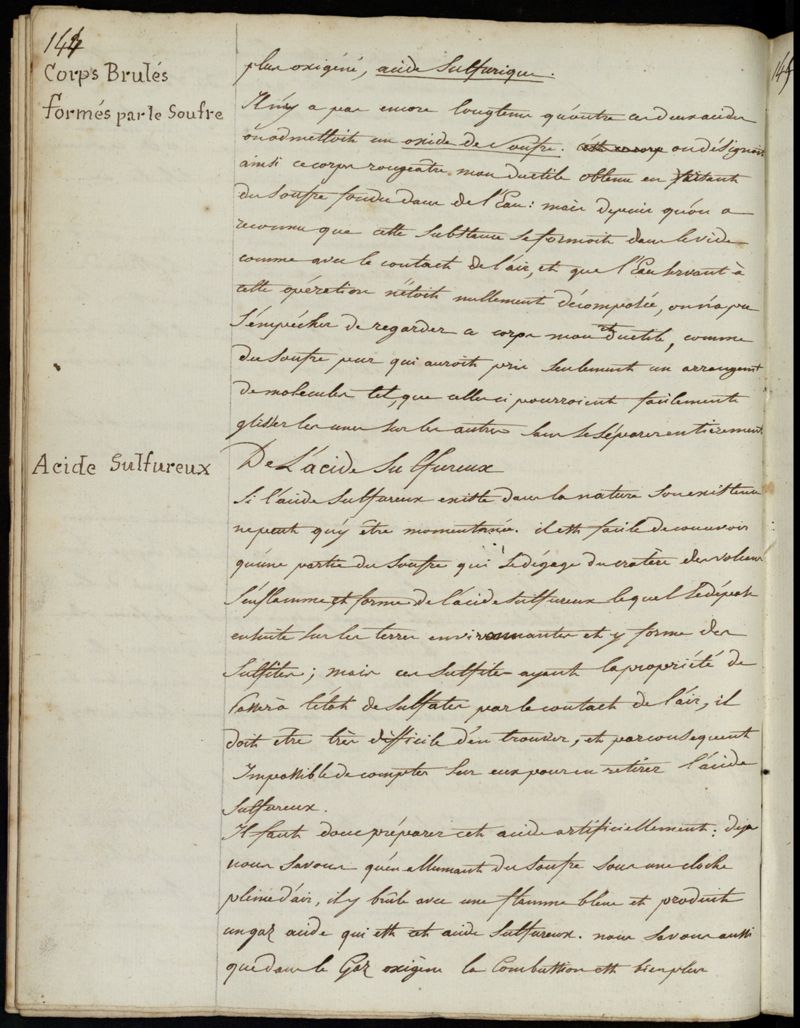 144
Corps Brulés
formés par le Soufre
plus oxigéné, acide Sulfurique.
Il n'y a pas encore longtems qu'outre ces deux acides
on admettoit un oxide de Soufre. on désignoit
ainsi ce corps rougeatre mou ductile obtenu en jettant
du Soufre fondu dans de l'Eau : mais depuis qu'on a
reconnu que cette substance se formoit dans le vide
comme avec le contact de l'air, et que l'Eau servant à
cette opération n'étoit nullement décomposée, on n'a pu
S'empêcher de regarder ce corps mou et ductile, comme
du Soufre pur qui auroit pris seulement un arrangemt
de molecules tel, que celles ci pourroient facilement
glisser les unes sur les autres sans se séparer entièrement.
Acide Sulfureux
De L'acide Sulfureux
Si l'acide Sulfureux existe dans la nature son existence
ne peut qu'y être momentanée. il est facile de concevoir
qu'une partie du Soufre qui se dégage du cratère des volcans
S'enflamme et forme de l'acide Sulfureux lequel se dépose
ensuite sur les terres environnantes et y forme des
Sulfites ; mais ces Sulfites ayant la propriété de
passer à l'état de Sulfates par le contact de l'air, il
doit etre très difficile d'en trouver, et par consequent
Impossible de compter sur eux pour en retirer l'acide
Sulfureux.
Il faut donc préparer cet acide artificiellement : deja
nous savons qu'en allumant du Soufre sous une cloche
pleine d'air, il y brûle avec une flamme bleue et produit
un gaz acide qui est cet acide Sulfureux. nous savons aussi
que dans le Gaz oxigène la Combustion est bien plus
145